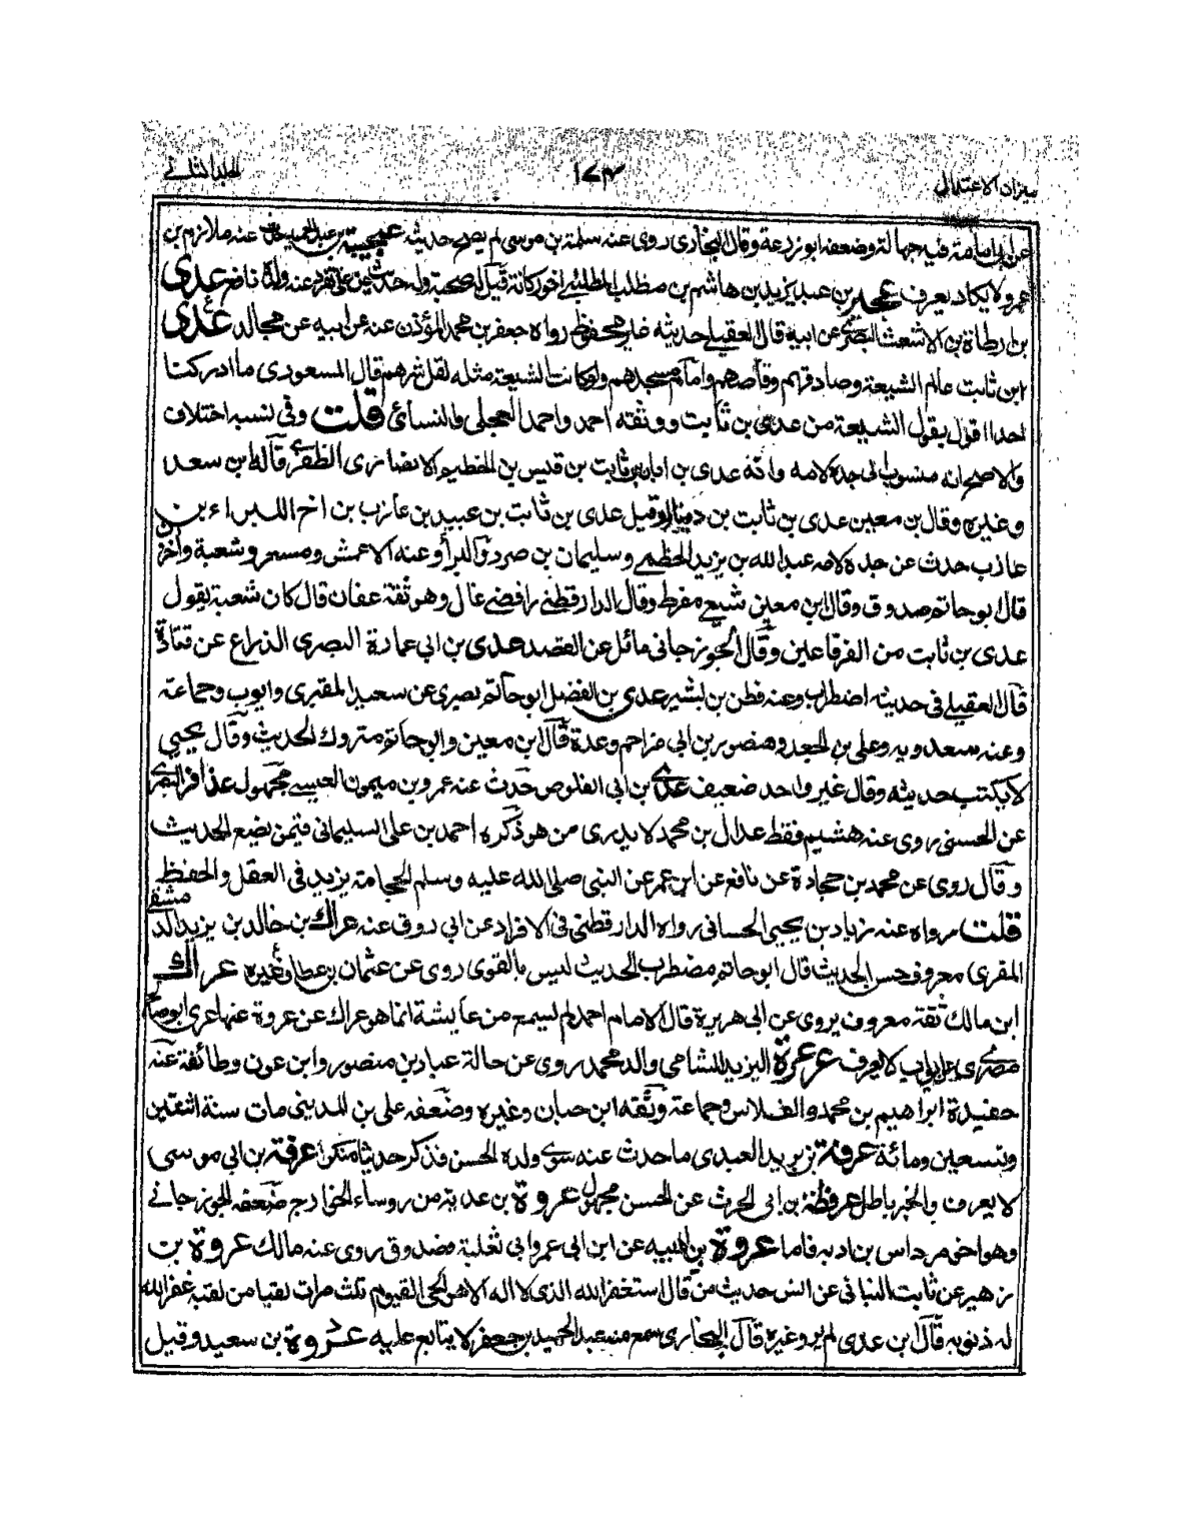 ميزان الاعتدال ١٧٣ المجلد الثاني
عن ابي امامة فيه جهالة وضعفه ابو زرعة وقال البخاري روى عنه سلمة بن موسى لم يصح حديثه عجيبة بن عبد الحميد عنه ملازم بن
عمرو لا يكاد يعرف عجير بن عبد يزيد بن هاشم بن مطلب المطلبي اخو ركانة قيل له صحبة وله حديث عن علي تفرد عنه ولده نافع عدي
بن ارطاة بن الاشعث البصري عن ابيه قال العقيلي حديثه غير محفوظ رواه جعفر بن محمد المؤذن عنه عن ابيه عن مجالد عدي
ابن ثابت عالم الشيعة وصادقهم وقاصهم وامام مسجدهم ولو كانت الشيعة مثله لقل شرهم قال المسعودي ما ادركنا
احدا اقول بقول الشيعة من عدي بن ثابت ووثقه احمد واحمد العجلي والنسائي قلت وفي نسبه اختلاف
والاصح انه منسوب الى جده لامه وانه عدي بن ابان بن ثابت بن قيس بن الخطيم الانصاري الظفري قاله ابن سعد
وغيره وقال بن معين عدي بن ثابت بن دينار وقيل عدي بن ثابت بن عبيد بن عازب بن اخ البراء بن
عازب حدث عن جده لامه عبد الله بن يزيد الخطمي وسليمان بن صرد والبراء وعنه الاعمش ومسعر وشعبة وآخرون
قال ابو حاتم صدوق وقال ابن معين شيعي مفرط وقال الدارقطني رافضي غال وهو ثقة عفان قال كان شعبة يقول
عدي بن ثابت من الفرقاعين وقال الجوزجاني مائل عن القصد عدي بن ابي عمارة البصري الذراع عن قتادة
قال العقيلي في حديثه اضطراب وعنه قطن بن بشير عدي بن الفضل ابو حاتم بصري عن سعيد المقبري وايوب وجماعة
وعنه سعدويه وعلي بن الجعد ومنصور بن ابي مزاحم وعدة قال ابن معين وابو حاتم متروك الحديث وقال يحيى
لا يكتب حديثه وقال غير واحد ضعيف عدي بن ابي القلوص حدث عنه عمرو بن ميمون العبسي مجهول عذافر البصري
عن الحسن روى عنه هشيم فقط عذال بن محمد لا يدرى من هو ذكره احمد بن علي السليماني فيمن يضع الحديث
وقال روى عن محمد بن جحادة عن نافع عن ابن عمر عن النبي صلى الله عليه وسلم الحجامة يزيد في العقل والحفظ
قلت رواه عنه زياد بن يحيى الحساني رواه الدارقطني في الافراد عن ابي روق عنه عراك بن خالد بن يزيد الدمشقي
المقري معروف حسن الحديث قال ابو حاتم مضطرب الحديث ليس بالقوي روى عن عثمان بن عطاء وغيره عراك
ابن مالك ثقة معروف يروي عن ابي هريرة قال الامام احمد لم يسمع من عايشة انما هو عراك عن عروة عنها عرى ابو صالح
مصري لا يعرف عرعرة اليزيد الشامي والد محمد روى عن خالة عباد بن منصور وابن عون وطائفة عنه
حفيده ابراهيم بن محمد والفلاس وجماعة وثقه ابن حبان وغيره وضعفه علي بن المديني مات سنة اثنتين
وتسعين ومائة عرفة بن يزيد العبدي ما حدث عنه سوى ولده الحسن فذكر حديثا منكرا عرفة بن ابي موسى
لا يعرف والخبر باطل عرفطة بن ابي الحرث عن الحسن مجهول عروة بن عدية من رؤساء الخوارج ضعفه الجوزجاني
وهو اخى مرداس بن ادية فاما عروة بن اذينة عن ابن ابي عمر وابي ثعلبة فصدوق روى عنه مالك عروة بن
زهير عن ثابت البناني عن انس حديث من قال استغفر الله الذي لا اله الا هو الحي القيوم ثلث مرات نقيا من لقنه غفر الله
له ذنوبه قال ابن عدي لم يرو غيره قال البخاري سمع منه عبد الحميد بن جعفر لا يتابع عليه عروة بن سعيد وقيل